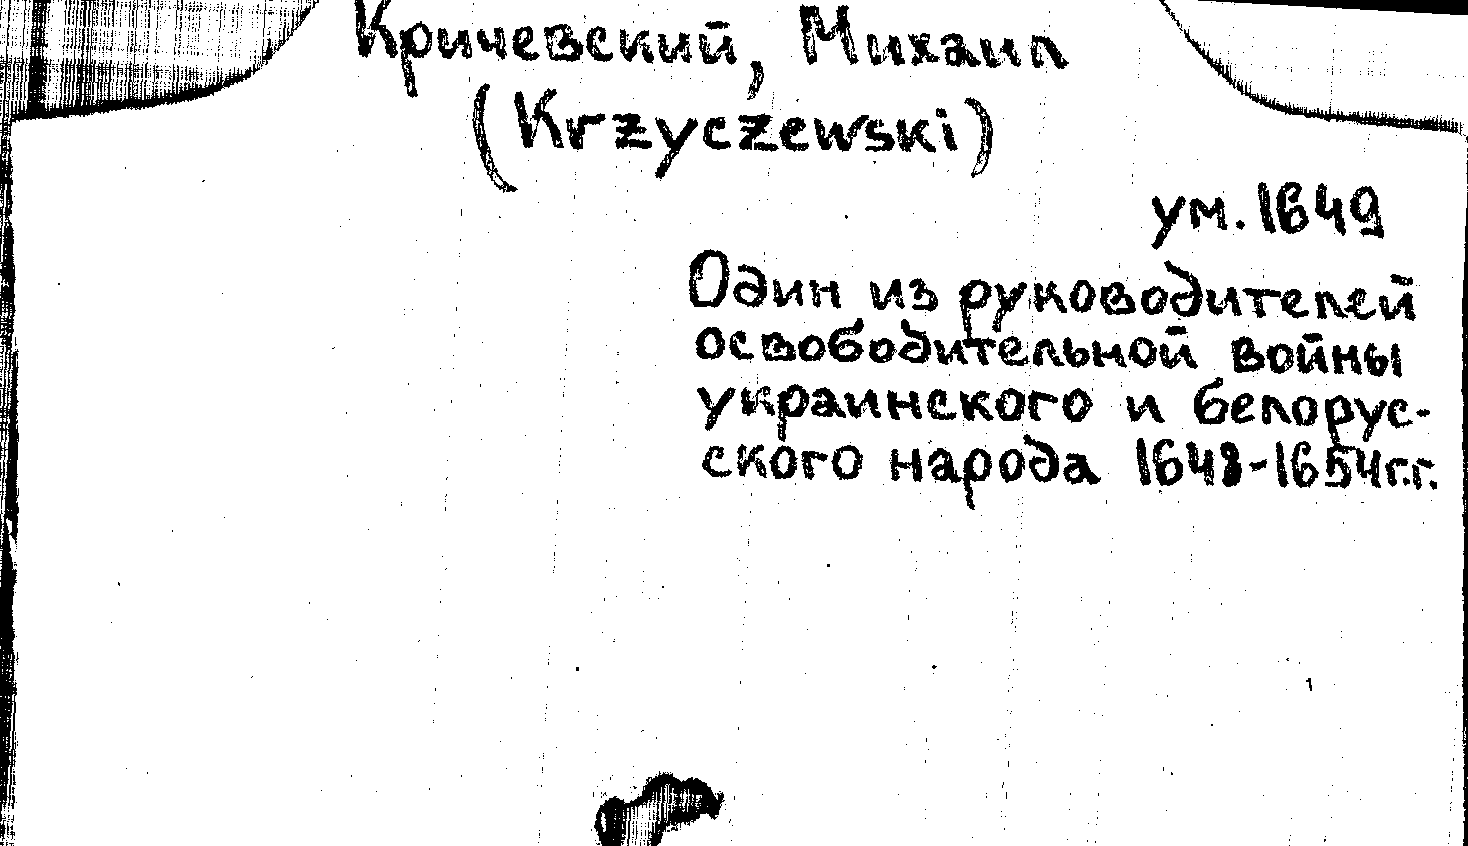 Кричевский, Михаил
(Krzyczewski)
ум. 1649
Один из руководителей
освободительной войны
украинского и белорус-
ского народа 1648-1654г.г.